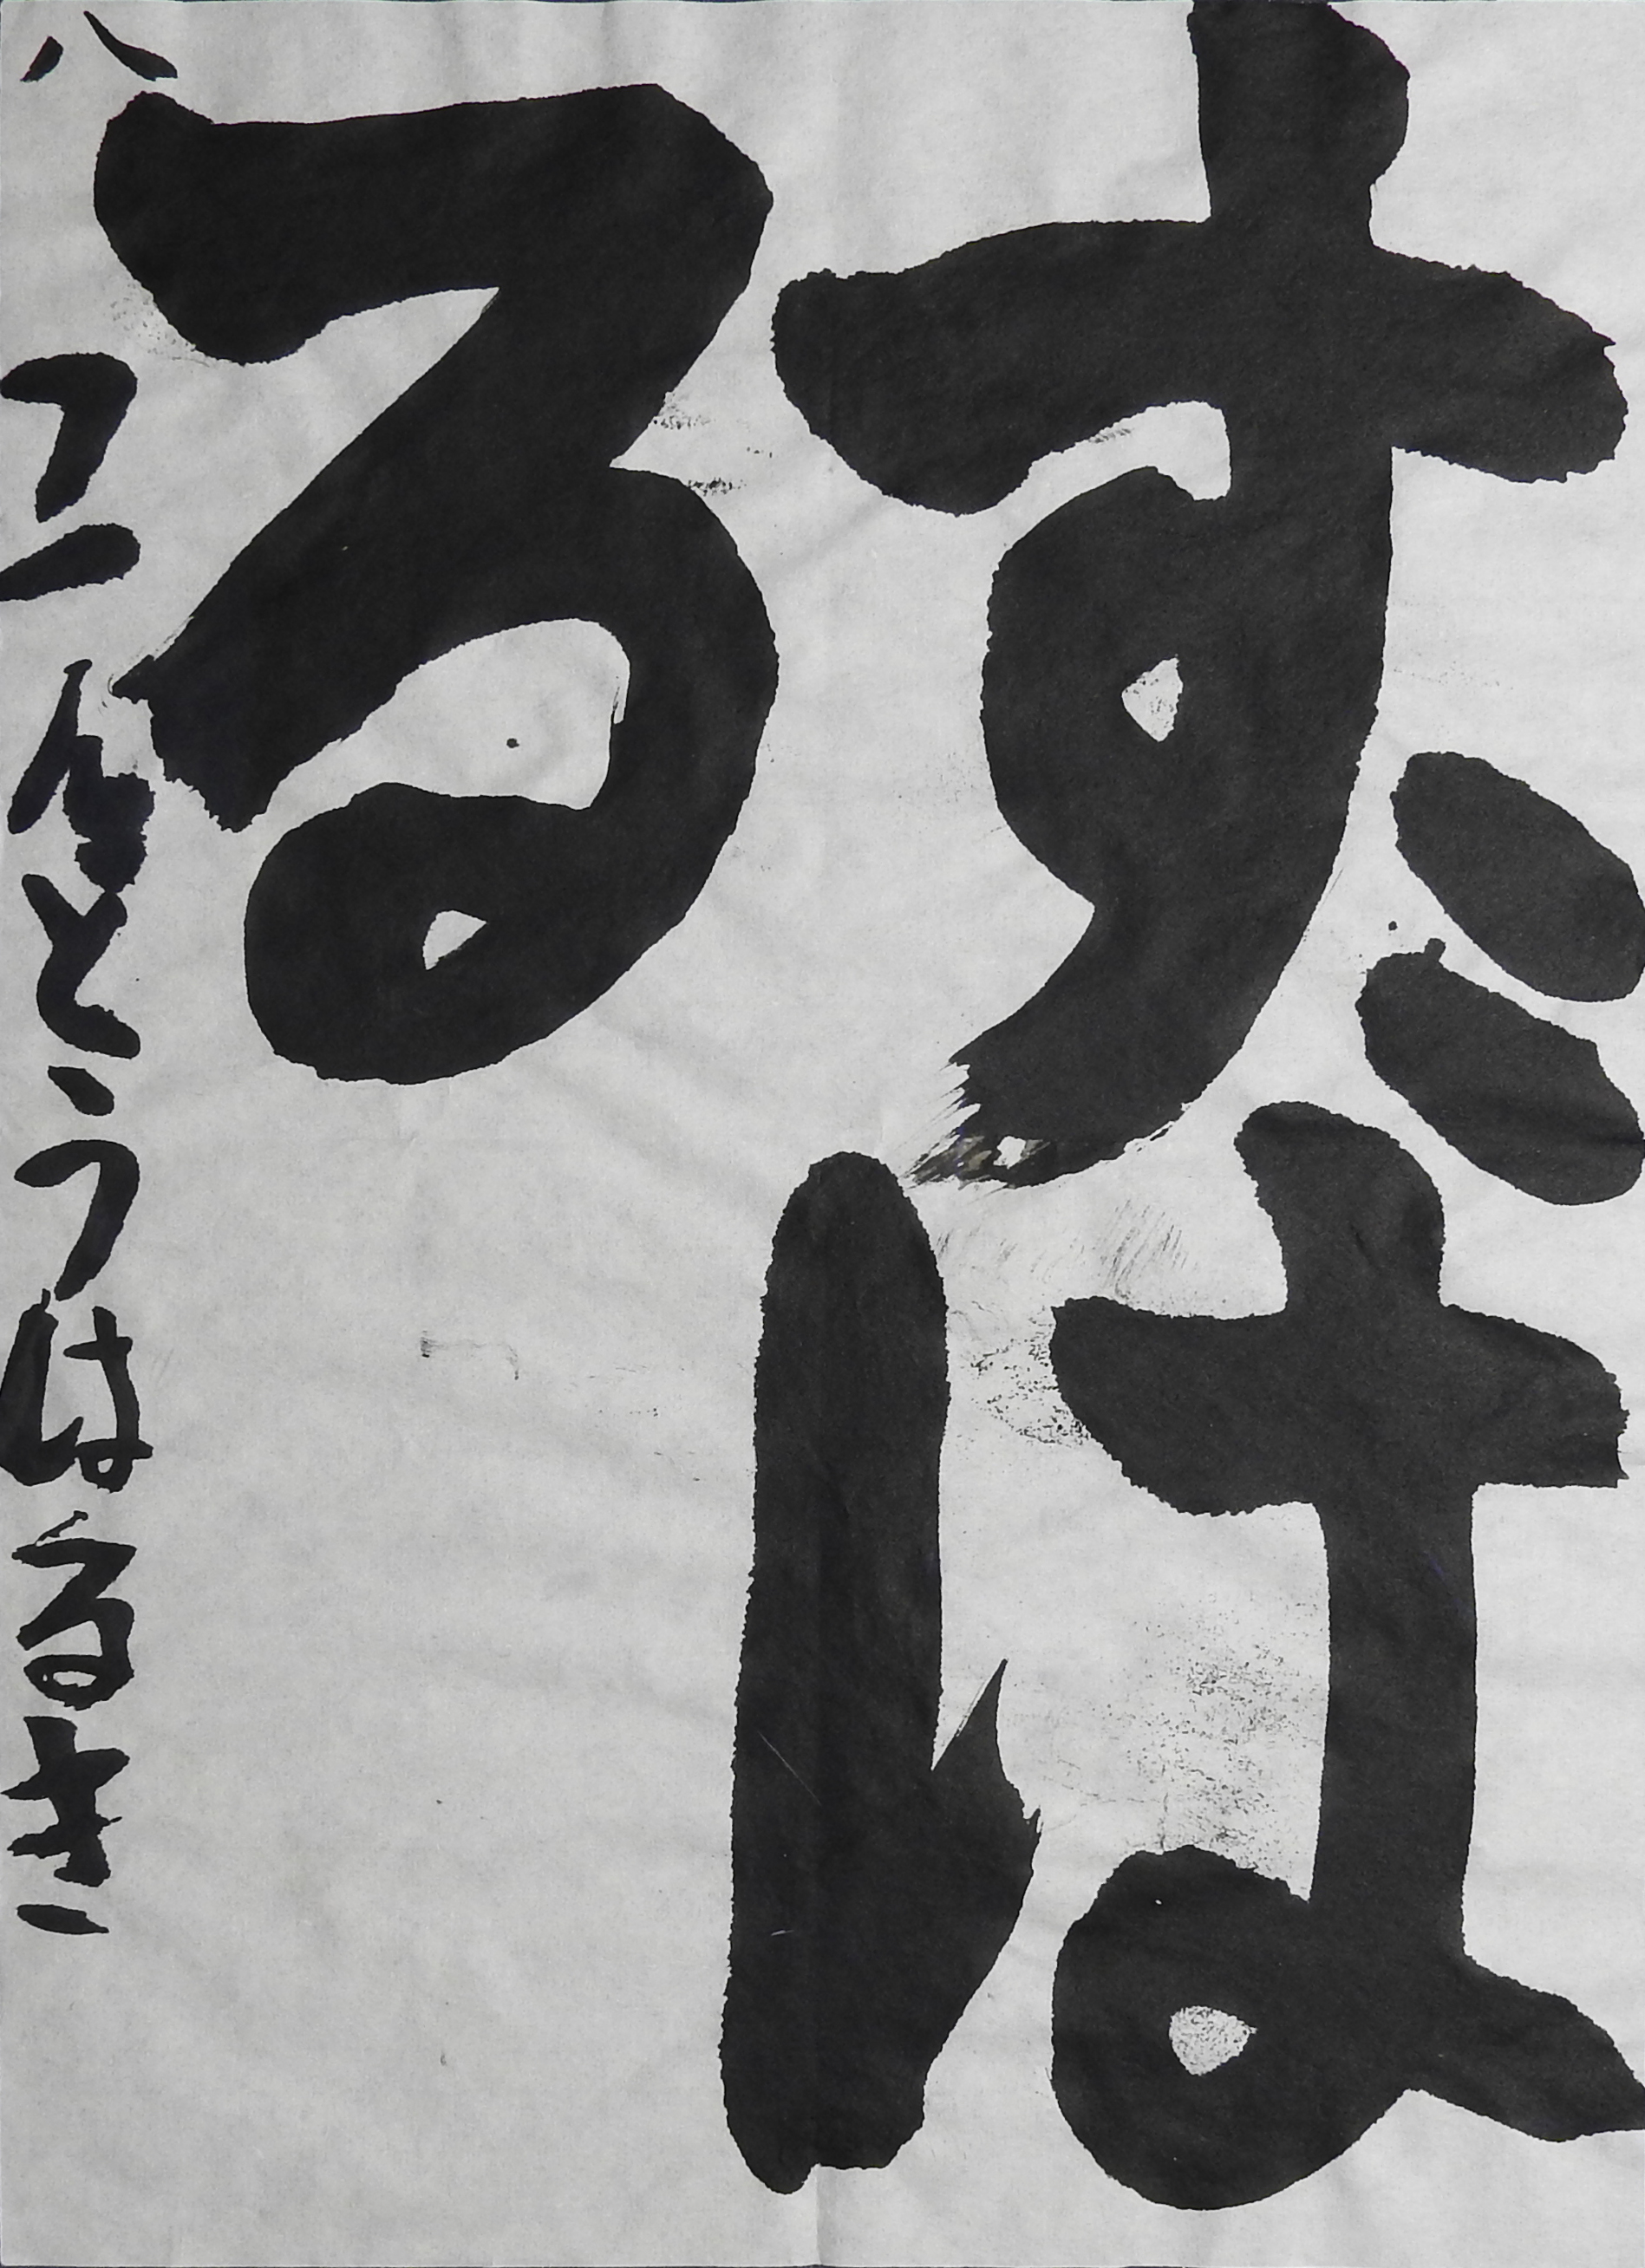 すば
る
八 こんとうはるき